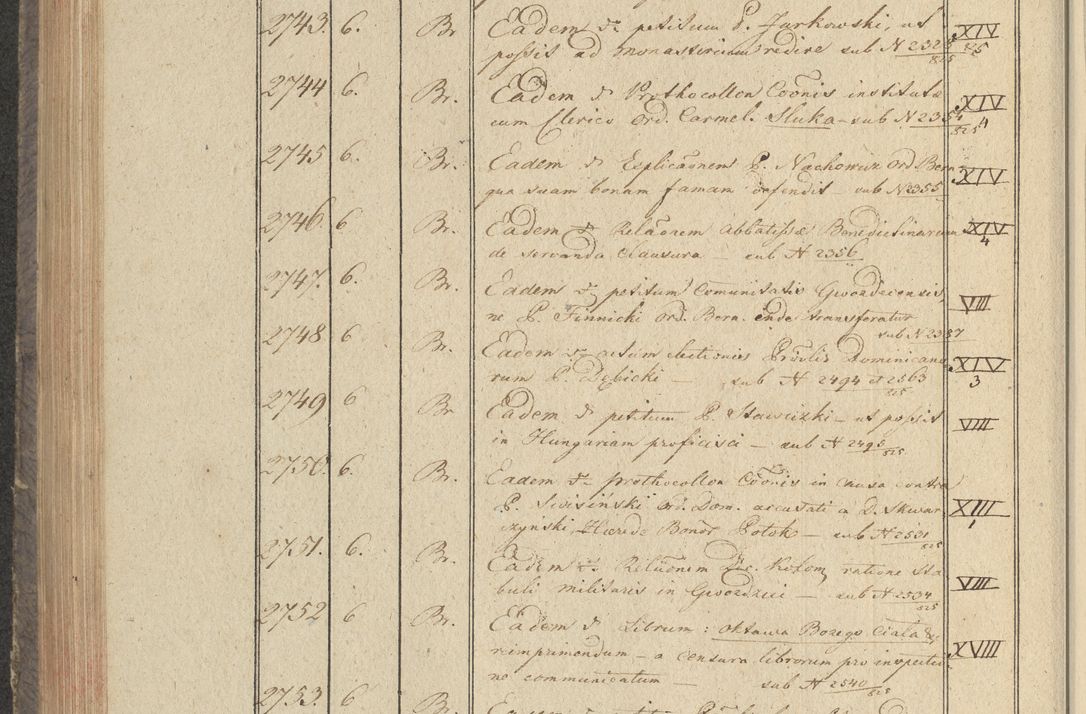 2743. 6. Br. Eadem petitum P. Jarkowski, ut XIV
possit ad monasterium redire sub N 2325/825 525
2744 6. Br. Eadem Prothocollon Coonis institutæ XIV
cum Clerico Ord. Carmel. Sluka – sub N 2354/825 4
2745 6. Br. Eadem Explicaonem P. Nachowicz Ord Bern XIV
qua suam bonam famam defendit – sub N 2355
2746. 6 Br. Eadem Relaonem Abbatissæ Benedictinarum XIV
de servanda Clausura – sub N 2356 4
2747. 6. Br. Eadem petitum Comunitatis Gwozdecensis, VIII
ne P. Finnicki Ord. Bern. inde transferatur
sub N 2357
2748 6 Br. Eadem actum electionis Provlis Dominicano XIV
rum P. Dębicki – sub N 2494 et 2563/825 3
2749 6 Br Eadem petitum P. Stawiczki – ut possit VIII
in Hungariam proficisci – sub N 2495/825
2750. 6. Br. Eadem prothocollon Coonis in causa contra
P. Siwisiński Ord. Dom. accusati a D. Skwar XIII
czyński Hærede Bonor Potok – sub N 2531/825 1
2751. 6. Br. Eadem Relaonem Kołom ratione sta
buli militaris in Gwozdziec – sub N 2534/825 VIII
2752 6 Br. Eadem Librum: Oktawa Bozego Ciała
reimprimendum – a Censura librorum pro XVIII
ne communicatum – sub N 2540/825
2753. 6 Br. Eadem